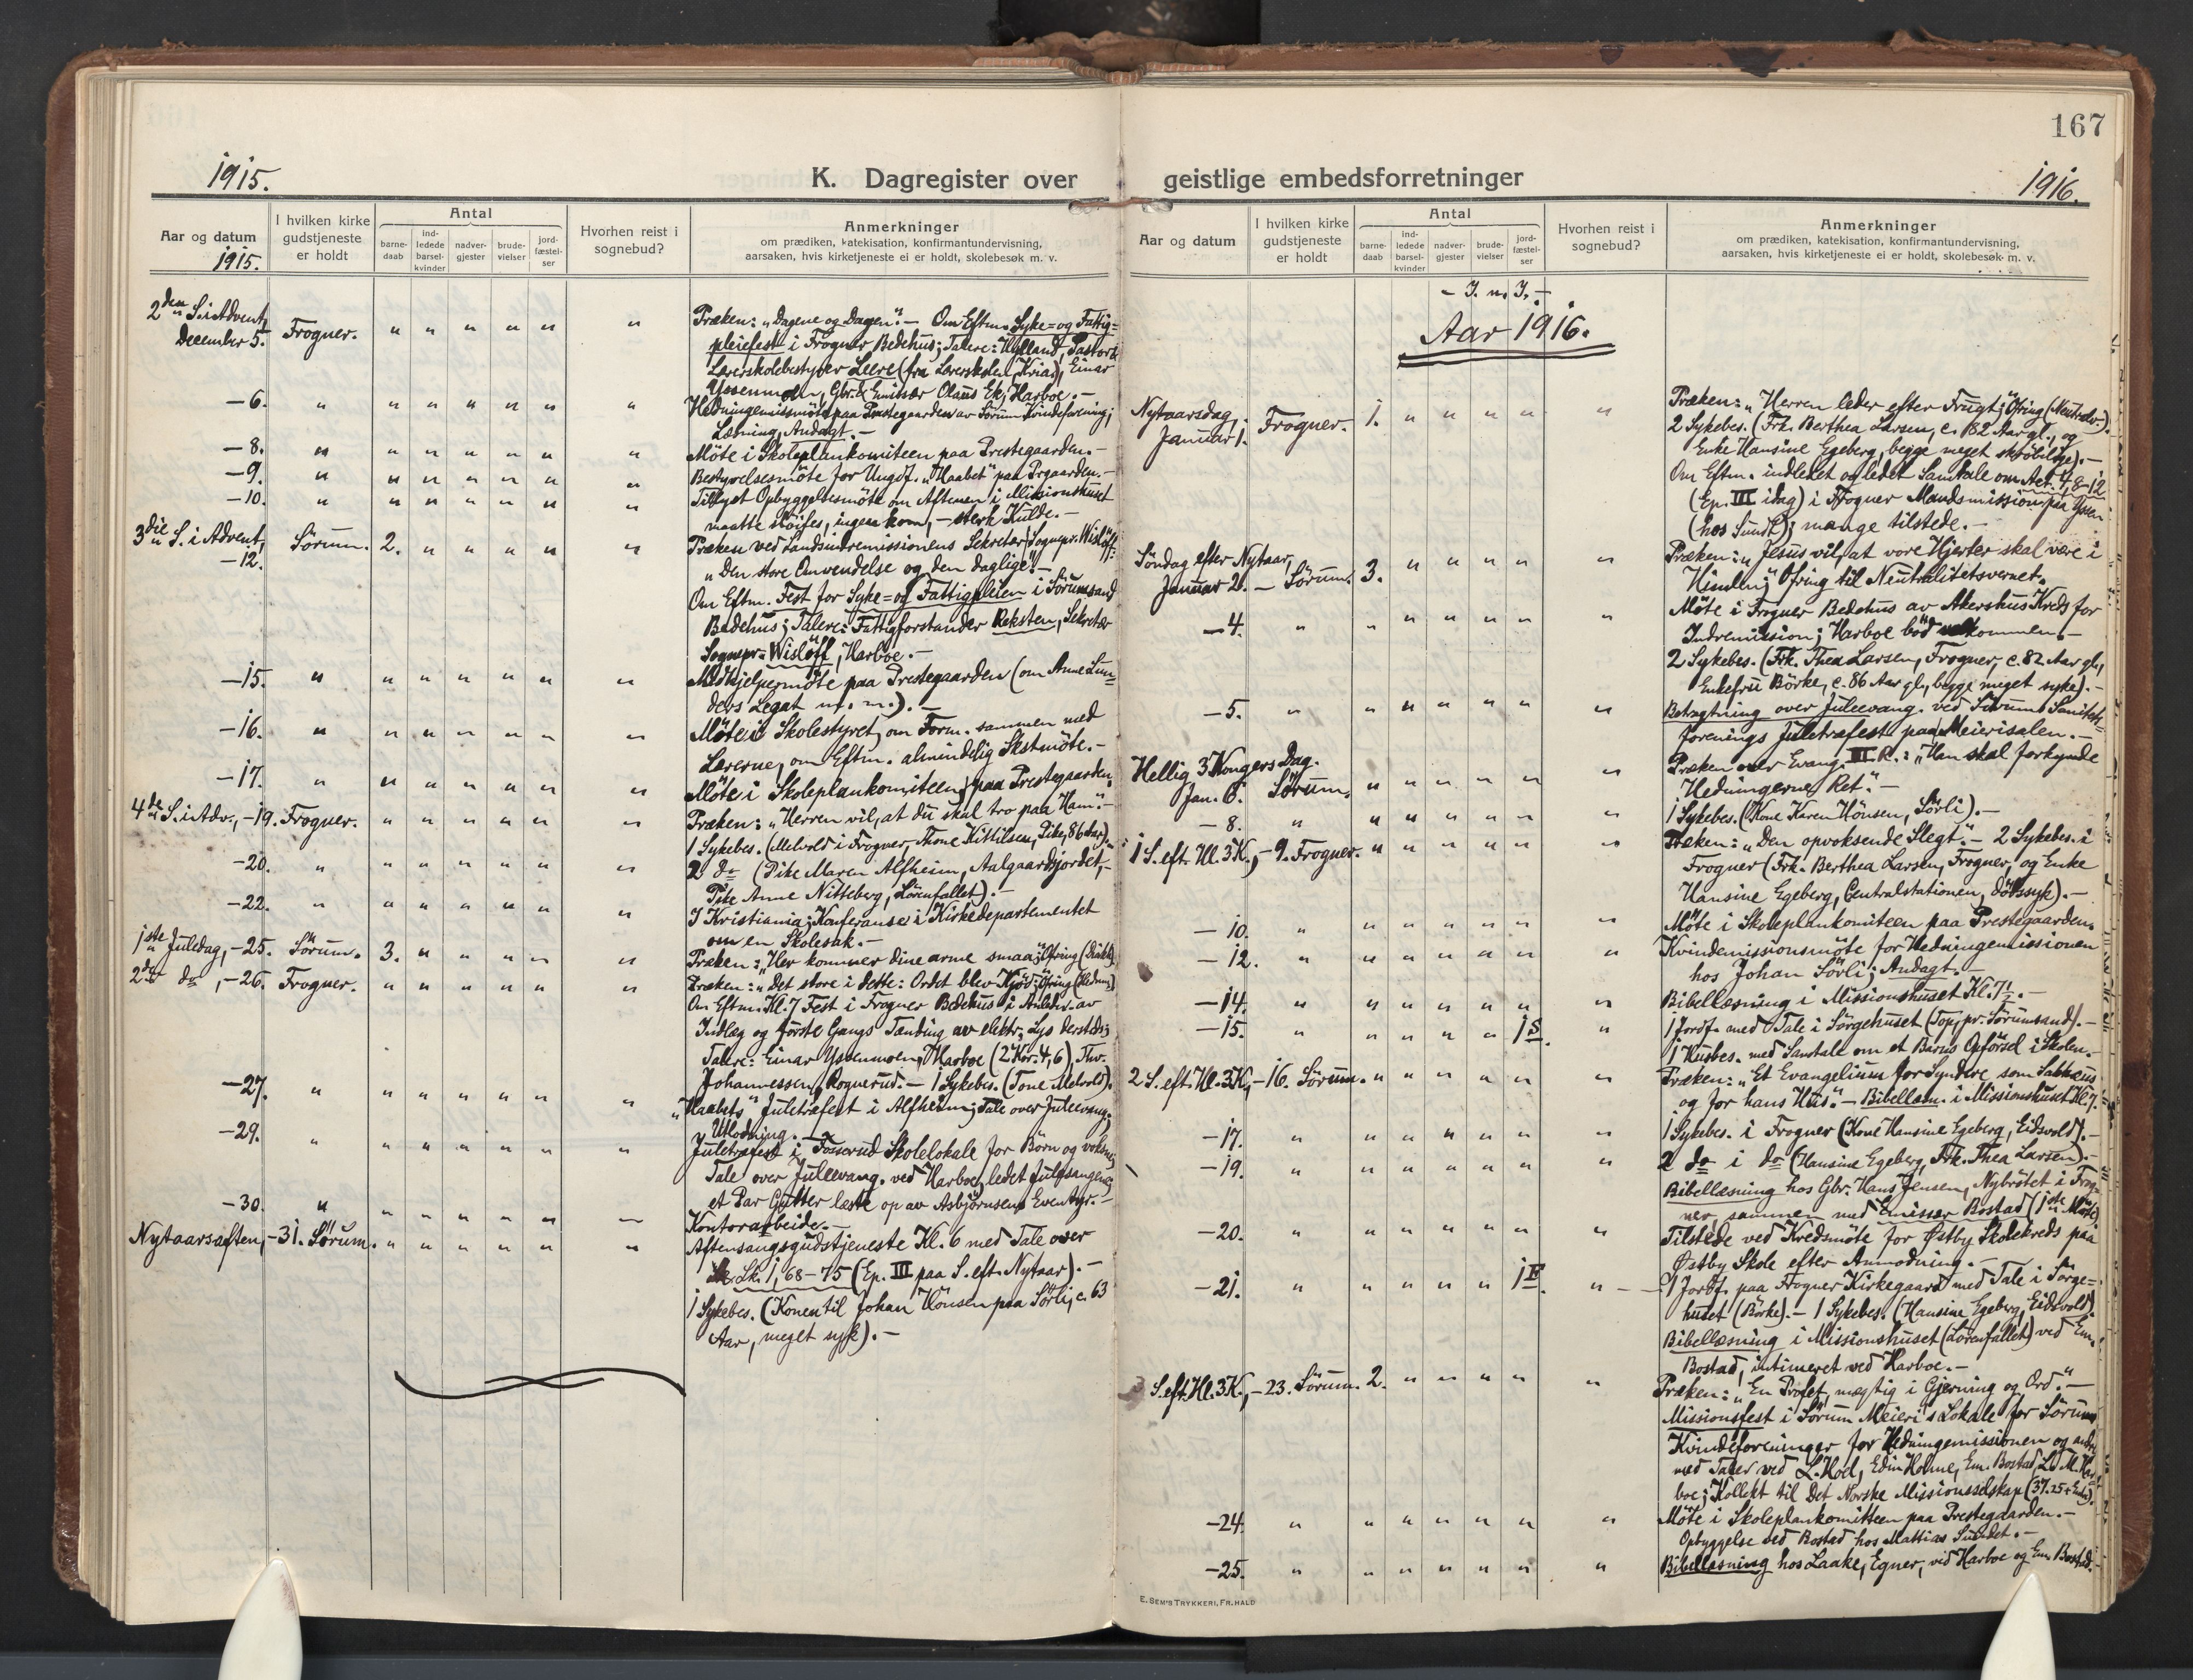 1915.
K. Dagregister over
Aar og datum
1915.
I hvilken kirke
gudstjeneste
er holdt
Antal
barne-
daab
ind-
ledede
barsel-
kvinder
nadver-
gjester
brude-
vielser
jord-
fæstel-
ser
Hvorhen reist i
sognebud?
Anmerkninger
om prædiken, katekisation, konfirmantundervisning,
aarsaken, hvis kirketjeneste ei er holdt, skolebesøk m. v.
2den S. i Advent,
December 5. Frogner. " " " " " " Præken: „Dagene og Dagen". — Om Eftm. Syke- og Fattig-
pleiefest i Frogner Bedehus; Talere: Pastor &
Lærerskolebestyrer (fra Lærerskolen, Kria), Einar
Yssenmoen, Gbr. & Emissær Olaus Ek, Harboe. —
— 6. " " " " " " " Hedningemissmöte paa Prestegaarden av Sörum Kvindeforening;
Læsning, Andagt. —
— 8. " " " " " " " Möte i Skoleplankomiteen paa Prestegaarden. —
— 9. " " " " " " " Bestyrelsesmöte for Ungdf. „Haabet" paa Prgaarden. —
— 10. " " " " " " " Tillyst Opbyggelsesmöte om Aftenen i Missionshuset
maatte slöifes, ingen kom, — sterk Kulde. —
3die S. i Advent,
— 12. Sörum. 2. " " " " " Præken ved Landsindremissionens Sekretær Sognepr. Wislöff:
„Den store Omvendelse og den daglige". —
Om Eftm. Fest for Syke- og Fattigpleien i Sörumsand
Bedehus; Talere: Fattigforstander Reksten, Sekretær
Sognepr. Wislöff, Harboe. —
— 15. " " " " " " " Medhjelpermöte paa Prestegaarden (om Anne Lun-
ders Legat m. m.). —
— 16. " " " " " " " Möte i Skolestyret, om Form. sammen med
Lærerne, om Eftm. almindelig Skstmöte. —
— 17. " " " " " " " Möte i Skoleplankomiteen paa Prestegaarden.
4de S. i Adv., — 19. Frogner. " " " " " " Præken: „Herren vil, at du skal tro paa Ham". —
1 Sykebes. (Melvold i Frogner, Tone Kittilsen, Pike, 86 Aar). —
— 20. " " " " " " " 2 do (Pike Maren Alfheim, Aalgaardsjordet, —
Pike Anne Nitteberg, Lörenfallet). —
— 22. " " " " " " " I Kristiania; Konferanse i Kirkedepartementet
om en Skolesak. —
1ste Juledag, — 25. Sörum. 3. " " " " " Præken: „Her kommer dine arme smaa"; Ofring
2den do, — 26. Frogner. " " " " " " Præken: „Det store i dette: Ordet blev Kjöd"; Ofring (Hedn.)
Om Eftm. Kl. 7 Fest i Frogner Bedehus i Anledn. av
Indlæg og förste Gangs Tænding av elektr. Lys dersteds;
Talere: Einar Yssenmoen, Harboe (2 Kor. 4, 6), Thv.
Johannessen, Rognerud. — 1 Sykebes. (Tone Melvold).
— 27. " " " " " " " „Haabets" Juletræfest i Alfheim; Tale over Juleevang.,
Utlodning. —
— 29. " " " " " " " Juletræfest i Fosserud Skolelokale for Börn og voksne;
Tale over Juleevang. ved Harboe, ledet Julesangene,
et Par Gutter læste op av Asbjörnsens Eventyr. —
— 30. " " " " " " — Kontorarbeide. —
Nytaarsaften, — 31. Sörum. " " " " " " Aftensangsgudstjeneste Kl. 6 med Tale over
Lk. 1, 68—75 (Ep. III paa S. eft. Nytaar). —
1 Sykebes. (Konen til Johan Hönsen paa Sörli, c. 63
Aar, meget syk). —
167
1916.
geistlige embedsforretninger
Aar og datum
I hvilken kirke
gudstjeneste
er holdt
Antal
barne-
daab
ind-
ledede
barsel-
kvinder
nadver-
gjester
brude-
vielser
jord-
fæstel-
ser
Hvorhen reist i
sognebud?
Anmerkninger
om prædiken, katekisation, konfirmantundervisning,
aarsaken, hvis kirketjeneste ei er holdt, skolebesøk m. v.
— I. n. J. —
Aar 1916.
Nytaarsdag,
Januar 1. Frogner. 1. " " " " " Præken: „Herren leder efter Frugt"; Ofring (Neutralv.).
2 Sykebes. (Frk. Berthea Larsen, c. 82 Aar gl., og
Enke Hansine Egeberg, begge meget skröbelige). —
Om Eftm. indledet og ledet Samtale om Act. 4, 8—12
(Ep. III idag) i Frogner Mandsmission paa Yssen
(hos Sundt); mange tilstede. —
Söndag efter Nytaar,
Januar 2. — Sörum. 3. " " " " " Præken: „Jesus vil, at vore Hjerter skal være i
Himlen"; Ofring til Neutralitetsvernet.
— 4. " " " " " " " Möte i Frogner Bedehus av Akershus Kreds for
Indremission; Harboe böd velkommen. —
2 Sykebes. (Frk. Thea Larsen, Frogner, c. 82 Aar gl.,
Enkefru Börke, c. 86 Aar gl., begge meget syke). —
— 5. " " " " " " " Betragtning over Juleevang. ved Sörum Sanitets-
forenings Juletræfest paa Meierisalen. —
Hellig 3 Kongers Dag.
Jan. 6. Sörum. " " " " " " Præken over Evang. III R.: „Han skal forkynde
Hedningerne Ret". —
— 8. " " " " " " " 1 Sykebes. (Kone Karen Hönsen, Sörli). —
1 S. eft. Hl. 3 K., — 9. Frogner. " " " " " " Præken: „Den opvoksende Slegt". — 2 Sykebes. i
Frogner (Frk. Berthea Larsen, Frogner, og Enke
Hansine Egeberg, Centralstationen, dödssyk). —
— 10. " " " " " " " Möte i Skoleplankomiteen paa Prestegaarden.
— 12. " " " " " " " Kvindemissionsmöte for Hedningemissionen
hos Johan Sörli; Andagt. —
— 14. " " " " " " Bibellæsning i Missionshuset Kl. 7½. —
— 15. " " " " " 1 S. " 1 Jordf. med Tale i Sörgehuset (Top, pr. Sörumsand). —
1 Husbes. med Samtale om et Barns Opförsel i Skolen. —
2 S. eft. Hl. 3 K., — 16. Sörum. " " " " " " Præken: „Et Evangelium for Syndere som Sakkæus
og for hans Hus". — Bibellæsn. i Missionshuset Kl. 7. —
— 17. " " " " " " " 1 Sykebes. i Frogner (Kone Hansine Egeberg, Eidsvold). —
— 19. " " " " " " " 2 do i do (Hansine Egeberg, Frk. Thea Larsen). —
Bibellæsning hos Gbr. Hans Jensen, Nybrötet i Frog-
ner, sammen med Emissær Bostad (1ste Möte).
— 20. " " " " " " " Tilstede ved Kredsmöte for Østby Skolekreds paa
Østby Skole efter Anmodning. —
— 21. " " " " " 1 F. " — 1 Jordf. paa Frogner Kirkegaard med Tale i Sörge-
huset (Börke). — 1 Sykebes. (Hansine Egeberg, Eidsvold).
Bibellæsning i Missionshuset (Lörenfallet) ved Em.
Bostad, intimeret ved Harboe. —
3 S. eft. Hl. 3 K., — 23. Sörum. 2. " " " " " Præken: „En Profet, mægtig i Gjerning og Ord". —
Missionsfest i Sörum Meieri's Lokale for Sörums
Kvindeforeninger for Hedningemissionen og andre
med Taler ved L. Hoel, Edin Holme, Em. Bostad, L. M. Har-
boe; Kollekt til Det Norske Missionsselskap
— 24. " " " " " " " Möte i Skoleplankomiteen paa Prestegaarden. —
Opbyggelse ved Bostad hos Mattias Sundet. —
— 25. " " " " " " " Bibellæsning hos Laake, Egner, ved Harboe og Em. Bostad. —
E. SEM'S TRYKKERI, FR.HALD